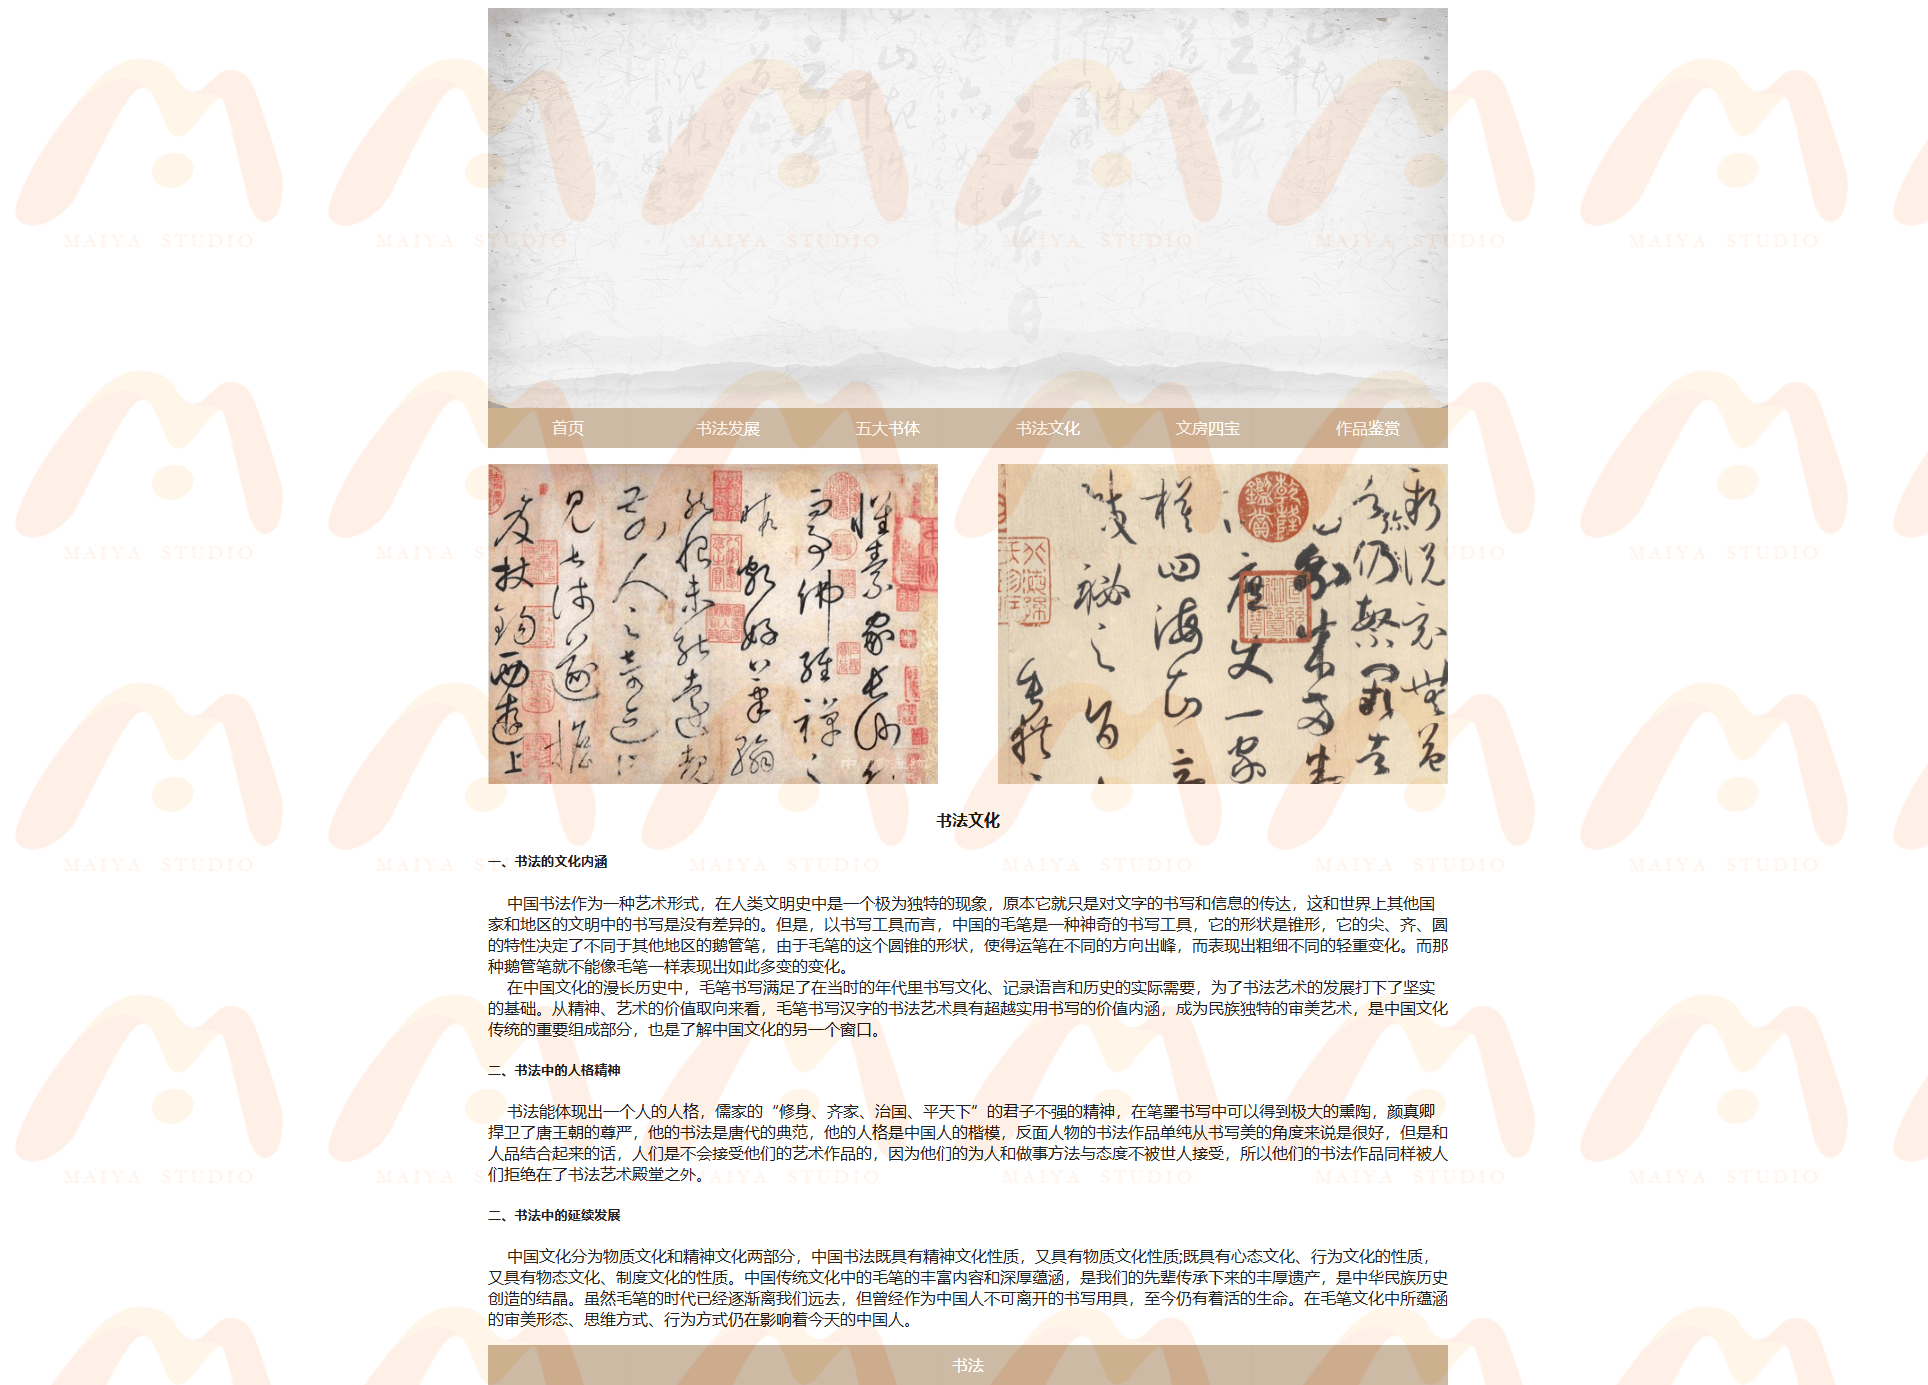 首页 书法发展 五大书体 书法文化 文房四宝 作品鉴赏
书法文化
一、书法的文化内涵
中国书法作为一种艺术形式，在人类文明史中是一个极为独特的现象，原本它就只是对文字的书写和信息的传达，这和世界上其他国
家和地区的文明中的书写是没有差异的。但是，以书写工具而言，中国的毛笔是一种神奇的书写工具，它的形状是锥形，它的尖、齐、圆
的特性决定了不同于其他地区的鹅管笔，由于毛笔的这个圆锥的形状，使得运笔在不同的方向出峰，而表现出粗细不同的轻重变化。而那
种鹅管笔就不能像毛笔一样表现出如此多变的变化。
在中国文化的漫长历史中，毛笔书写满足了在当时的年代里书写文化、记录语言和历史的实际需要，为了书法艺术的发展打下了坚实
的基础。从精神、艺术的价值取向来看，毛笔书写汉字的书法艺术具有超越实用书写的价值内涵，成为民族独特的审美艺术，是中国文化
传统的重要组成部分，也是了解中国文化的另一个窗口。
二、书法中的人格精神
书法能体现出一个人的人格，儒家的“修身、齐家、治国、平天下”的君子不强的精神，在笔墨书写中可以得到极大的熏陶，颜真卿
捍卫了唐王朝的尊严，他的书法是唐代的典范，他的人格是中国人的楷模，反面人物的书法作品单纯从书写美的角度来说是很好，但是和
人品结合起来的话，人们是不会接受他们的艺术作品的，因为他们的为人和做事方法与态度不被世人接受，所以他们的书法作品同样被人
们拒绝在了书法艺术殿堂之外。
二、书法中的延续发展
中国文化分为物质文化和精神文化两部分，中国书法既具有精神文化性质，又具有物质文化性质;既具有心态文化、行为文化的性质，
又具有物态文化、制度文化的性质。中国传统文化中的毛笔的丰富内容和深厚蕴涵，是我们的先辈传承下来的丰厚遗产，是中华民族历史
创造的结晶。虽然毛笔的时代已经逐渐离我们远去，但曾经作为中国人不可离开的书写用具，至今仍有着活的生命。在毛笔文化中所蕴涵
的审美形态、思维方式、行为方式仍在影响着今天的中国人。
书法
MAIYA STUDIO